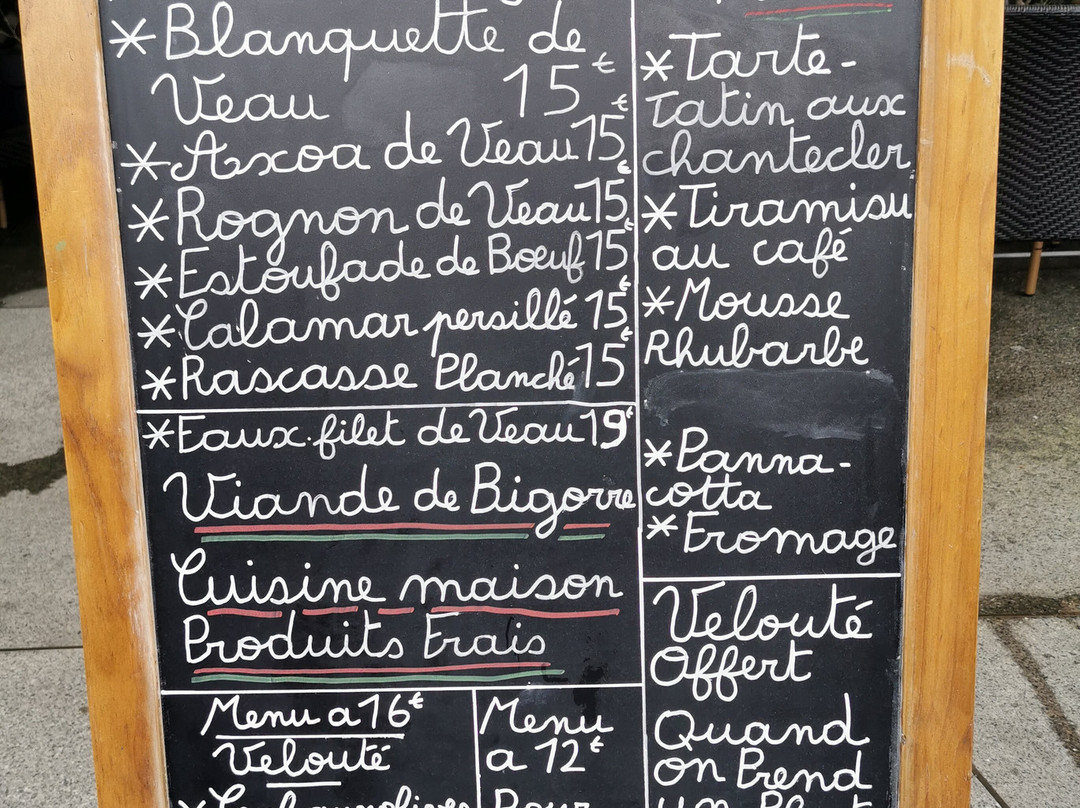 *Blanquette de
Veau 15€
*Axoa de Veau 15€
*Rognon de Veau 15€
*Estoufade de Boeuf 15€
*Calamar persillé 15€
*Rascasse Planché 15€
*Faux.filet de Veau 19€
Viande de Bigorre
Cuisine maison
Produits Frais
Menu a 16€
Velouté
Menu
a 12€
Pour
*Tarte-
Tatin aux
chantecler
*Tiramisu
au café
*Mousse
Rhubarbe
*Panna-
cotta
*Fromage
Velouté
Offert
Quand
on Prend
un Plat